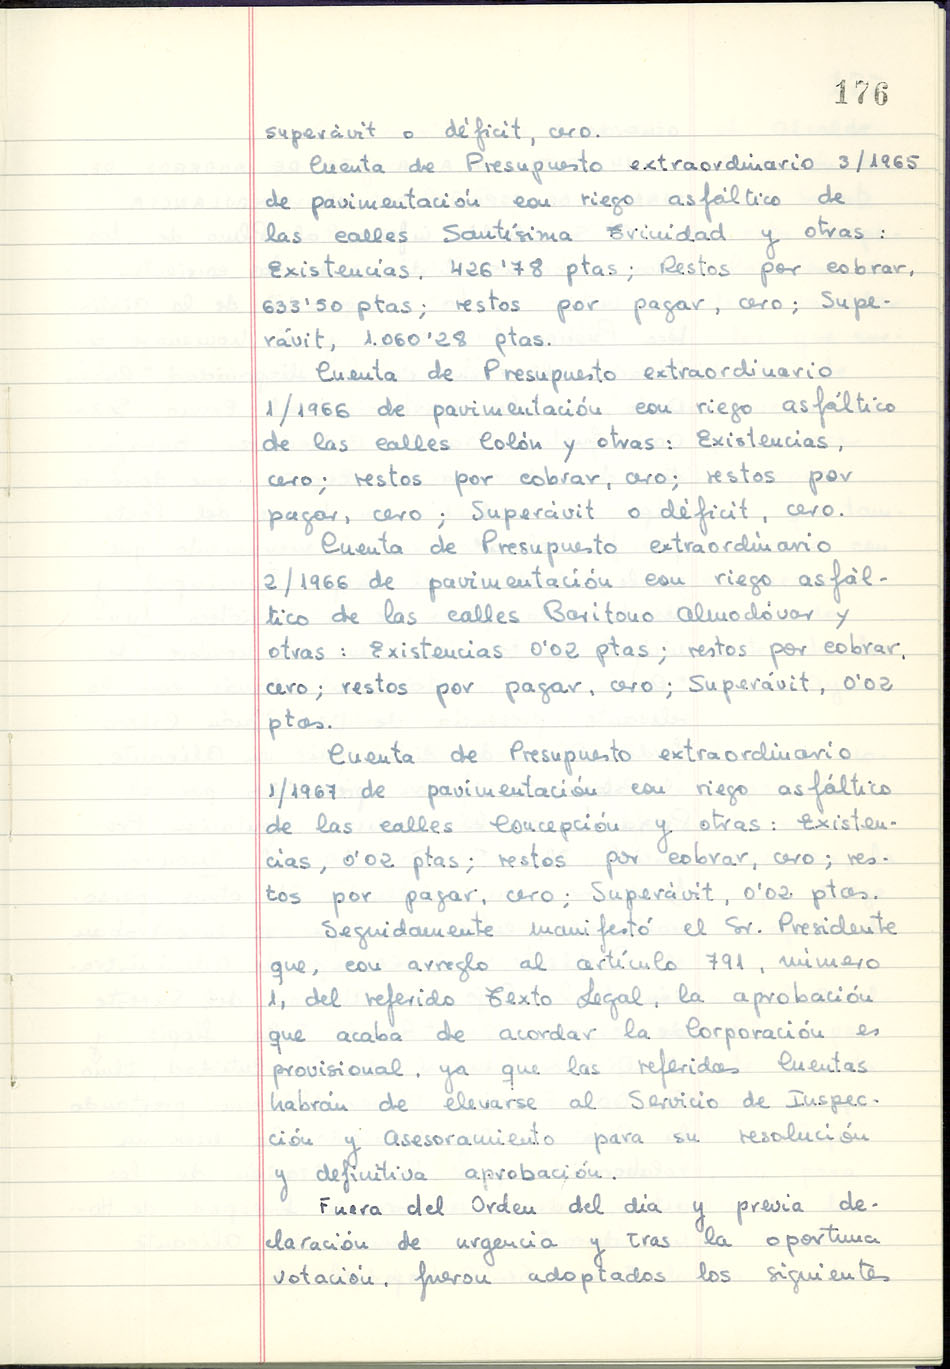 176
superávit o déficit, cero.
Cuenta de Presupuesto extraordinario 3/1965
de pavimentación con riego asfáltico de
las calles Santísima Trinidad y otras:
Existencias, 426'78 ptas; Restos por cobrar,
633'50 ptas; restos por pagar, cero; Supe-
rávit, 1.060'28 ptas.
Cuenta de Presupuesto extraordinario
1/1966 de pavimentación con riego asfáltico
de las calles Colón y otras: Existencias,
cero; restos por cobrar, cero; restos por
pagar, cero; Superávit o déficit, cero.
Cuenta de Presupuesto extraordinario
2/1966 de pavimentación con riego asfál-
tico de las calles Barítono Almodóvar y
otras: Existencias 0'02 ptas; restos por cobrar,
cero; restos por pagar, cero; Superávit, 0'02
ptas.
Cuenta de Presupuesto extraordinario
1/1967 de pavimentación con riego asfáltico
de las calles Concepción y otras: Existen-
cias, 0'02 ptas; restos por cobrar, cero; res-
tos por pagar, cero; Superávit, 0'02 ptas.
Seguidamente manifestó el Sr. Presidente
que, con arreglo al artículo 791, número
1, del referido Texto Legal, la aprobación
que acaba de acordar la Corporación es
provisional, ya que las referidas Cuentas
habrán de elevarse al Servicio de Inspec-
ción y Asesoramiento para su resolución
y definitiva aprobación.
Fuera del Orden del día y previa de-
claración de urgencia y tras la oportuna
votación, fueron adoptados los siguientes